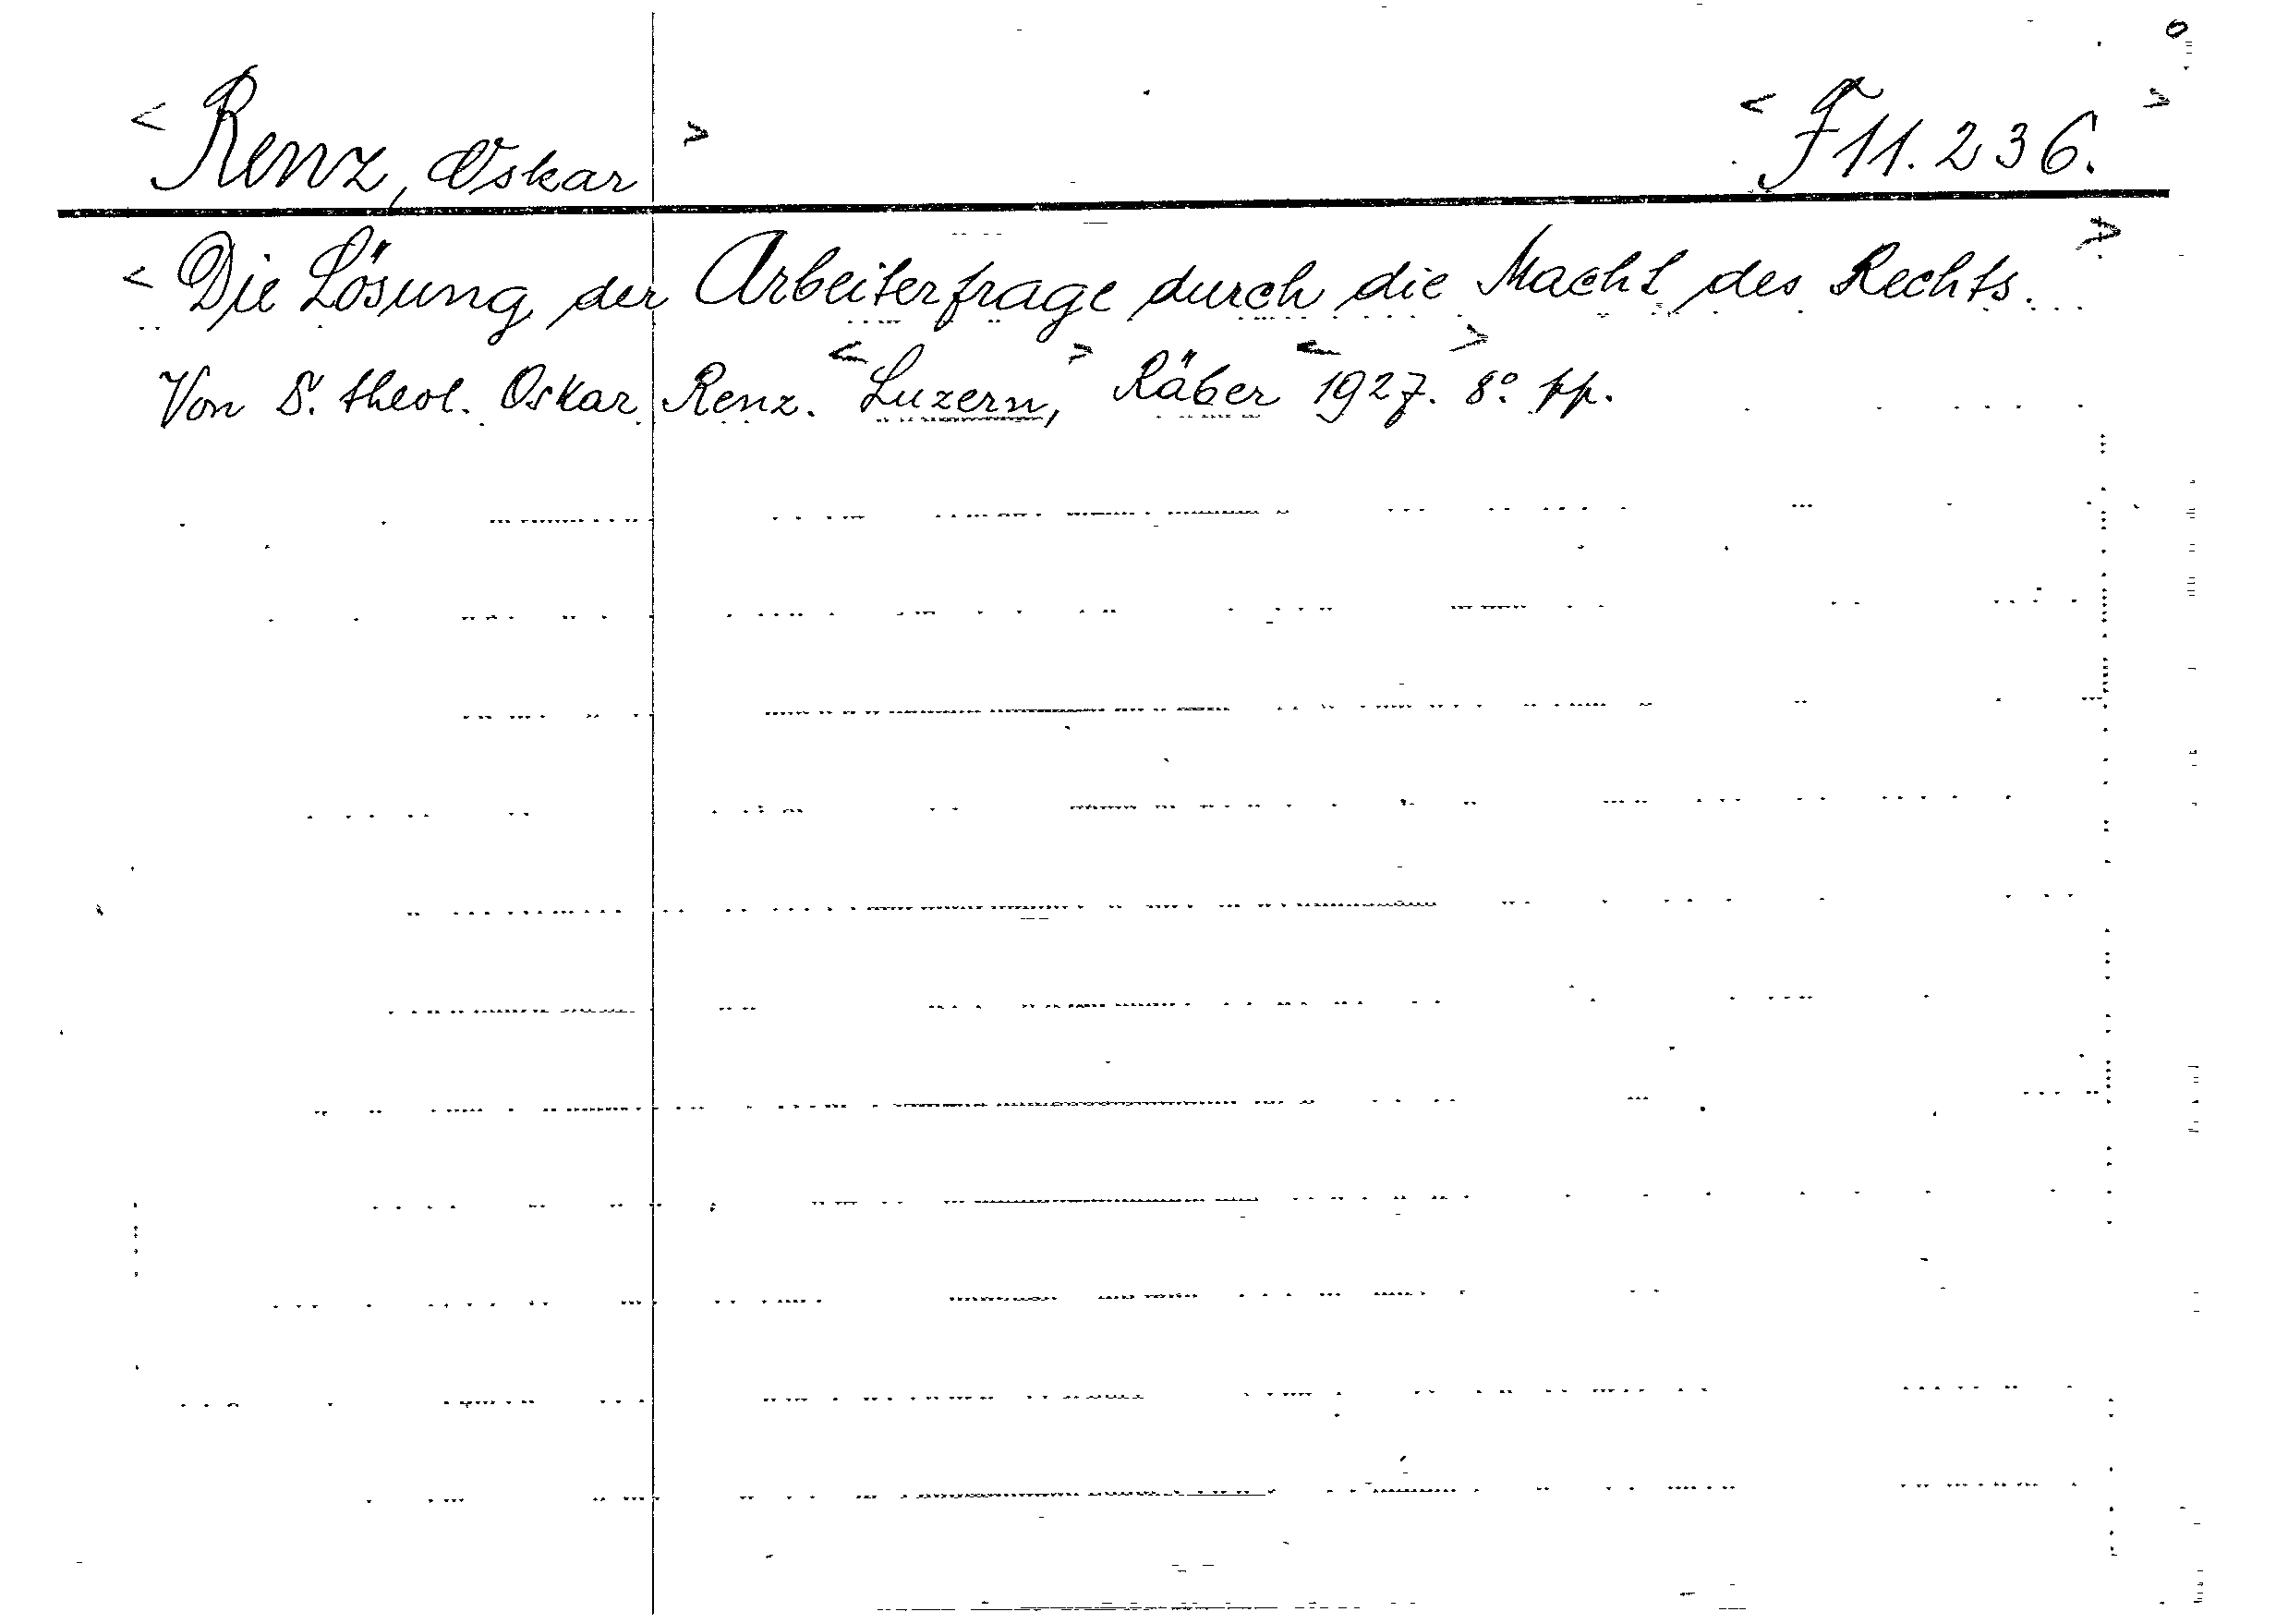 < Renz, Oskar > < F 11.236. >
< Die Lösung der Arbeiterfrage durch die Macht des Rechts. >
Von D. theol. Oskar Renz. < Luzern, > Räber < 1927. > 8° pp.